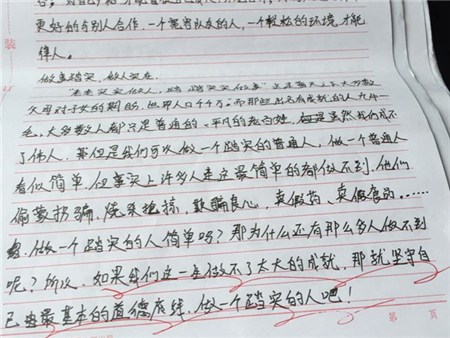 更好的与别人合作.一个宽容队友的人,一个轻松的环境才能
伟人.
做事踏实,做人实在.
父母对子女的期盼.世界人口千千万.而那些出名有成就的人九牛一
毛,大多数人都只是普通的、平凡的老百姓.虽然我们成不
了伟人.但是我们可以做一个踏实的普通人,做一个普通人
看似简单.但事实上许多人连这最简单的都做不到.他们
偷蒙拐骗,烧杀抢掠,欺骗良心,卖假药、卖假食品......
做一个踏实的人简单吗?那为什么还有那么多人做不到
呢?所以,如果我们这一生做不了太大的成就,那就坚守自
己最基本的道德底线,做一个踏实的人吧!
装
第 页